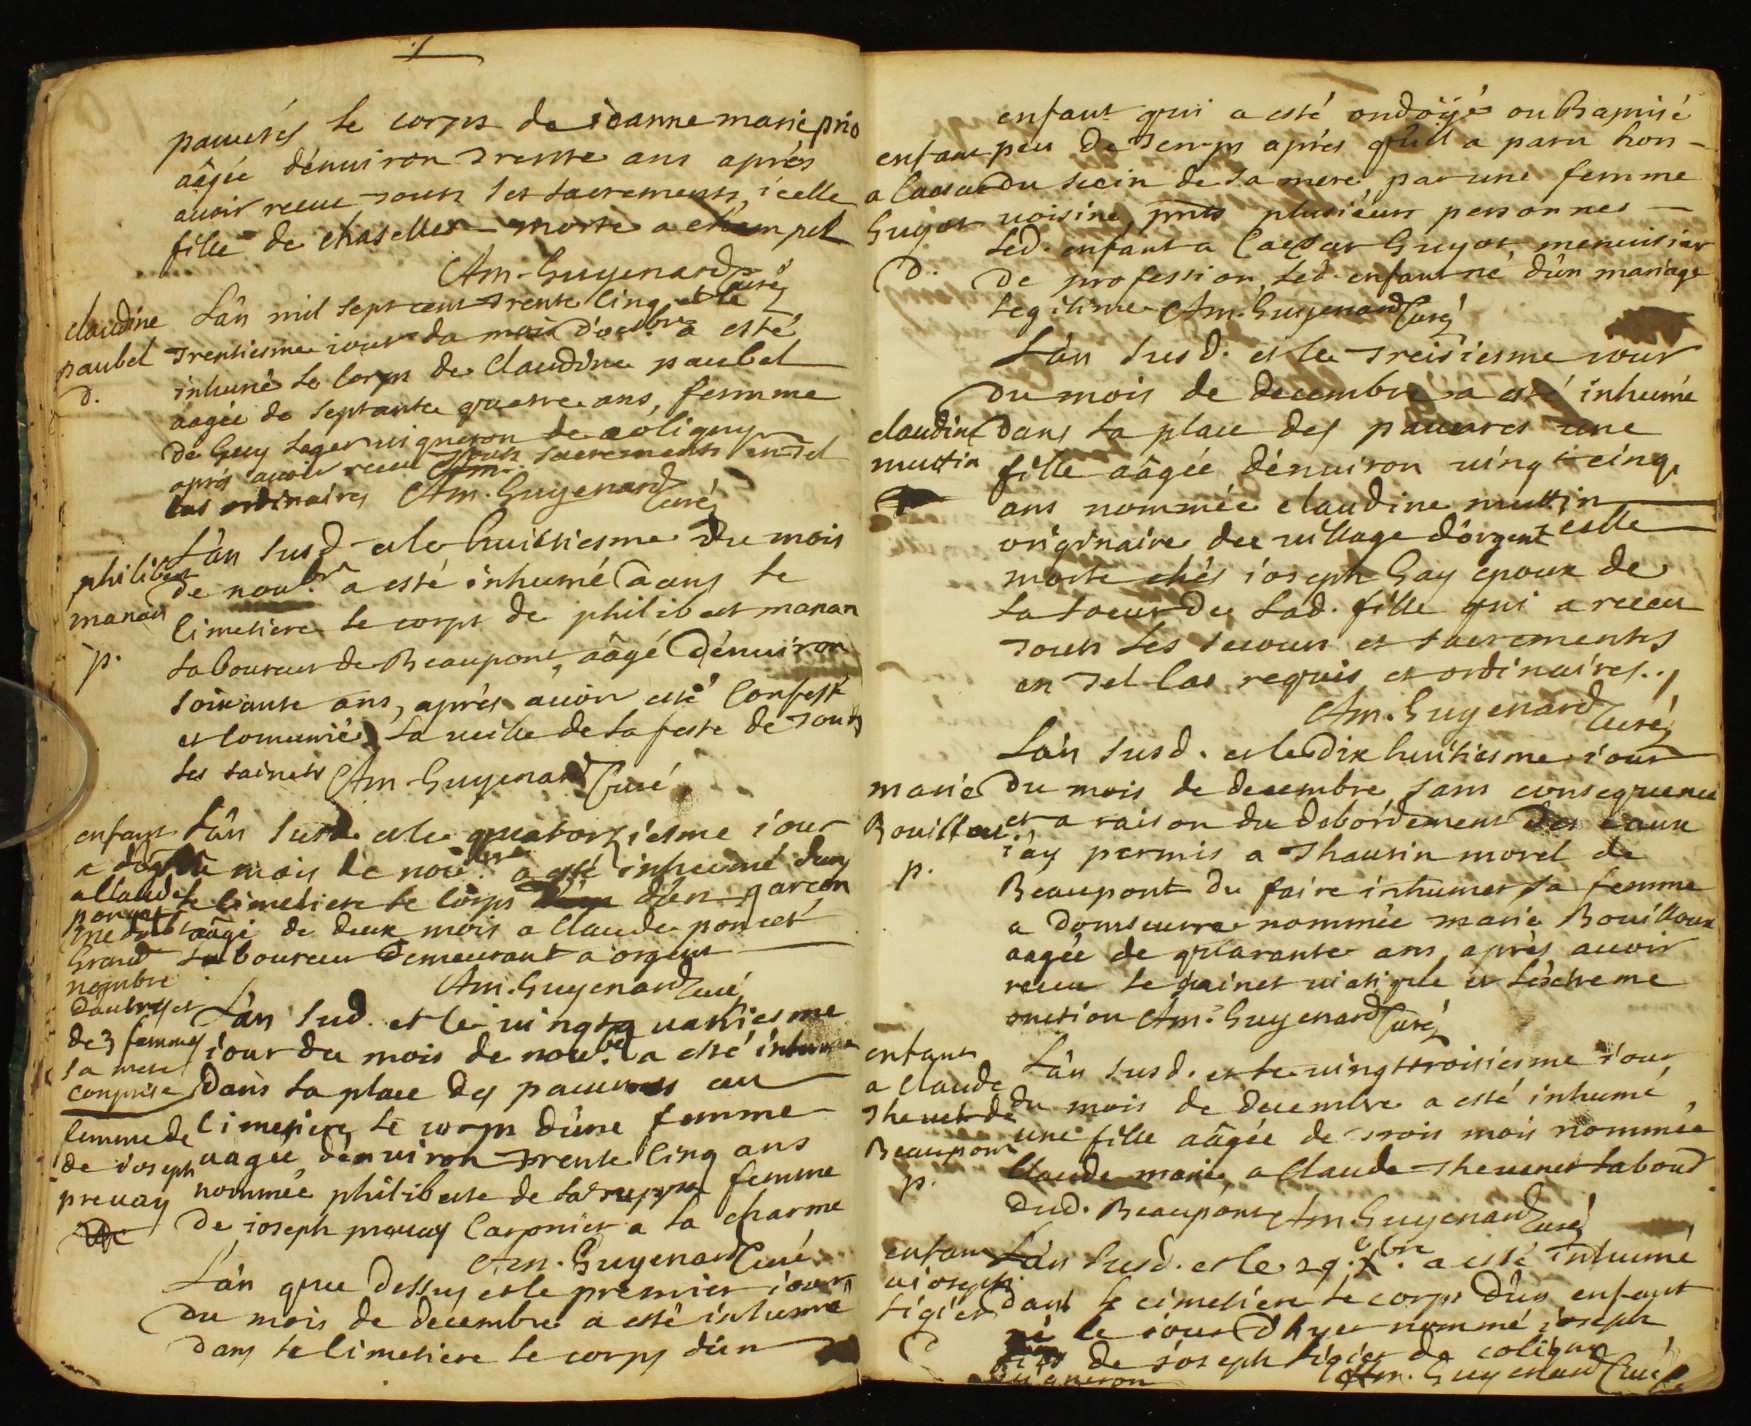 pauures le corps de ieanne marie prio
aâgée d'enuiron trente ans après
auoir receu tous les sacrements, icelle
fille de chaselles morte a
Am. Guyenard curé
claudine
paubel
d.
L'an mil sept cent trente cinq et le
trentiesme iour du mois d'octbre a esté
inhumé le corps de Claudine paubel
aagée de septante quatre ans, femme
de Guy Leger uigneron de coligny
après auoir receu tous sacrements en tel
cas ordinaires Am. Guyenard curé
philibert
manan
p.
L'an susd. et le huictiesme du mois
de nou.bre a esté inhumé dans le
cimetiere le corps de philibert manan
laboureur de Beaupont, aâgé d'enuiron
soixante ans, après auoir esté confessé
et comunié la ueille de la feste de tous
les saincts Am. Guyenard Curé
enfant
a Claude
poncet
Grand
nombre
d'autres et
de 3 femmes
la mere
comprise
L'an susd. et le quatorziesme iour
du mois de nou.bre a esté inhumé dans
le cimetiere le corps d'un garcon
aâgé de deux mois a Claude poncet
laboureur demeurant a orgent
Am. Guyenard curé
femme de
de ioseph
preuay
L'an sud. et le uingtquatriesme
iour du mois de nou.bre a esté inhumé
dans la place des pauures au
cimetiere le corps d'une femme
aagée d'enuiron trente cinq ans
nommée philiberte de femme
de ioseph preuay a la charme
Am. Guyenard Curé
L'an que dessus et le premier iour
du mois de decembre a esté inhumé
dans le cimetiere le corps d'un
enfant
a Caesar
Guyot
d.
enfant qui a esté ondoÿé ou Baptisé
peu de temps après qu'il a paru hors
du sein de sa mere, par une femme
uoisine plusieurs personnes
led. enfant a Caesar Guyot menuisier
de profession, led. enfant né d'un mariage
legitime Am. Guyenard Curé
claudine
muttin
L'an susd. et le treisiesme iour
du mois de decembre a esté inhumé
dans la place des pauures une
fille aâgée d'enuiron uingt cinq
ans nommée claudine muttin
originaire du uillage d'orgent celle
morte chés ioseph Gay epoux de
la soeur de lad. fille qui a receu
tous les secours et sacrements
en tel cas requis et ordinaires.
Am. Guyenard Curé
marie
Bouilloux
p.
L'an susd. et le dix huitiesme iour
du mois de decembre sans consequence
et a raison du debórdement des eaux
i'ay permis a Thaurin morel de
Beaupont de faire inhumer sa femme
a domseure nommée marie Bouilloux
aagée de quarante ans après auoir
receu le sainct uiatique et l'extreme
onction Am. Guyenard Curé
enfant
a Claude
Theuenet de
Beaupont
p.
L'an susd. et le uingttroisiesme iour
du mois de decembre a esté inhumé
une fille aâgée de trois mois nommée
Claude marie, a Claude Theuenet labour
dud. Beaupont Am. Guyenard Curé
enfant
a ioseph
ligier
d
L'an susd. et le 29. Xbre a esté inhumé
dans le cimetiere le corps d'un enfant
né le iour d'hyer nommé ioseph
fils de ioseph ligier de coligny
uigneron Am. Guyenard Curé